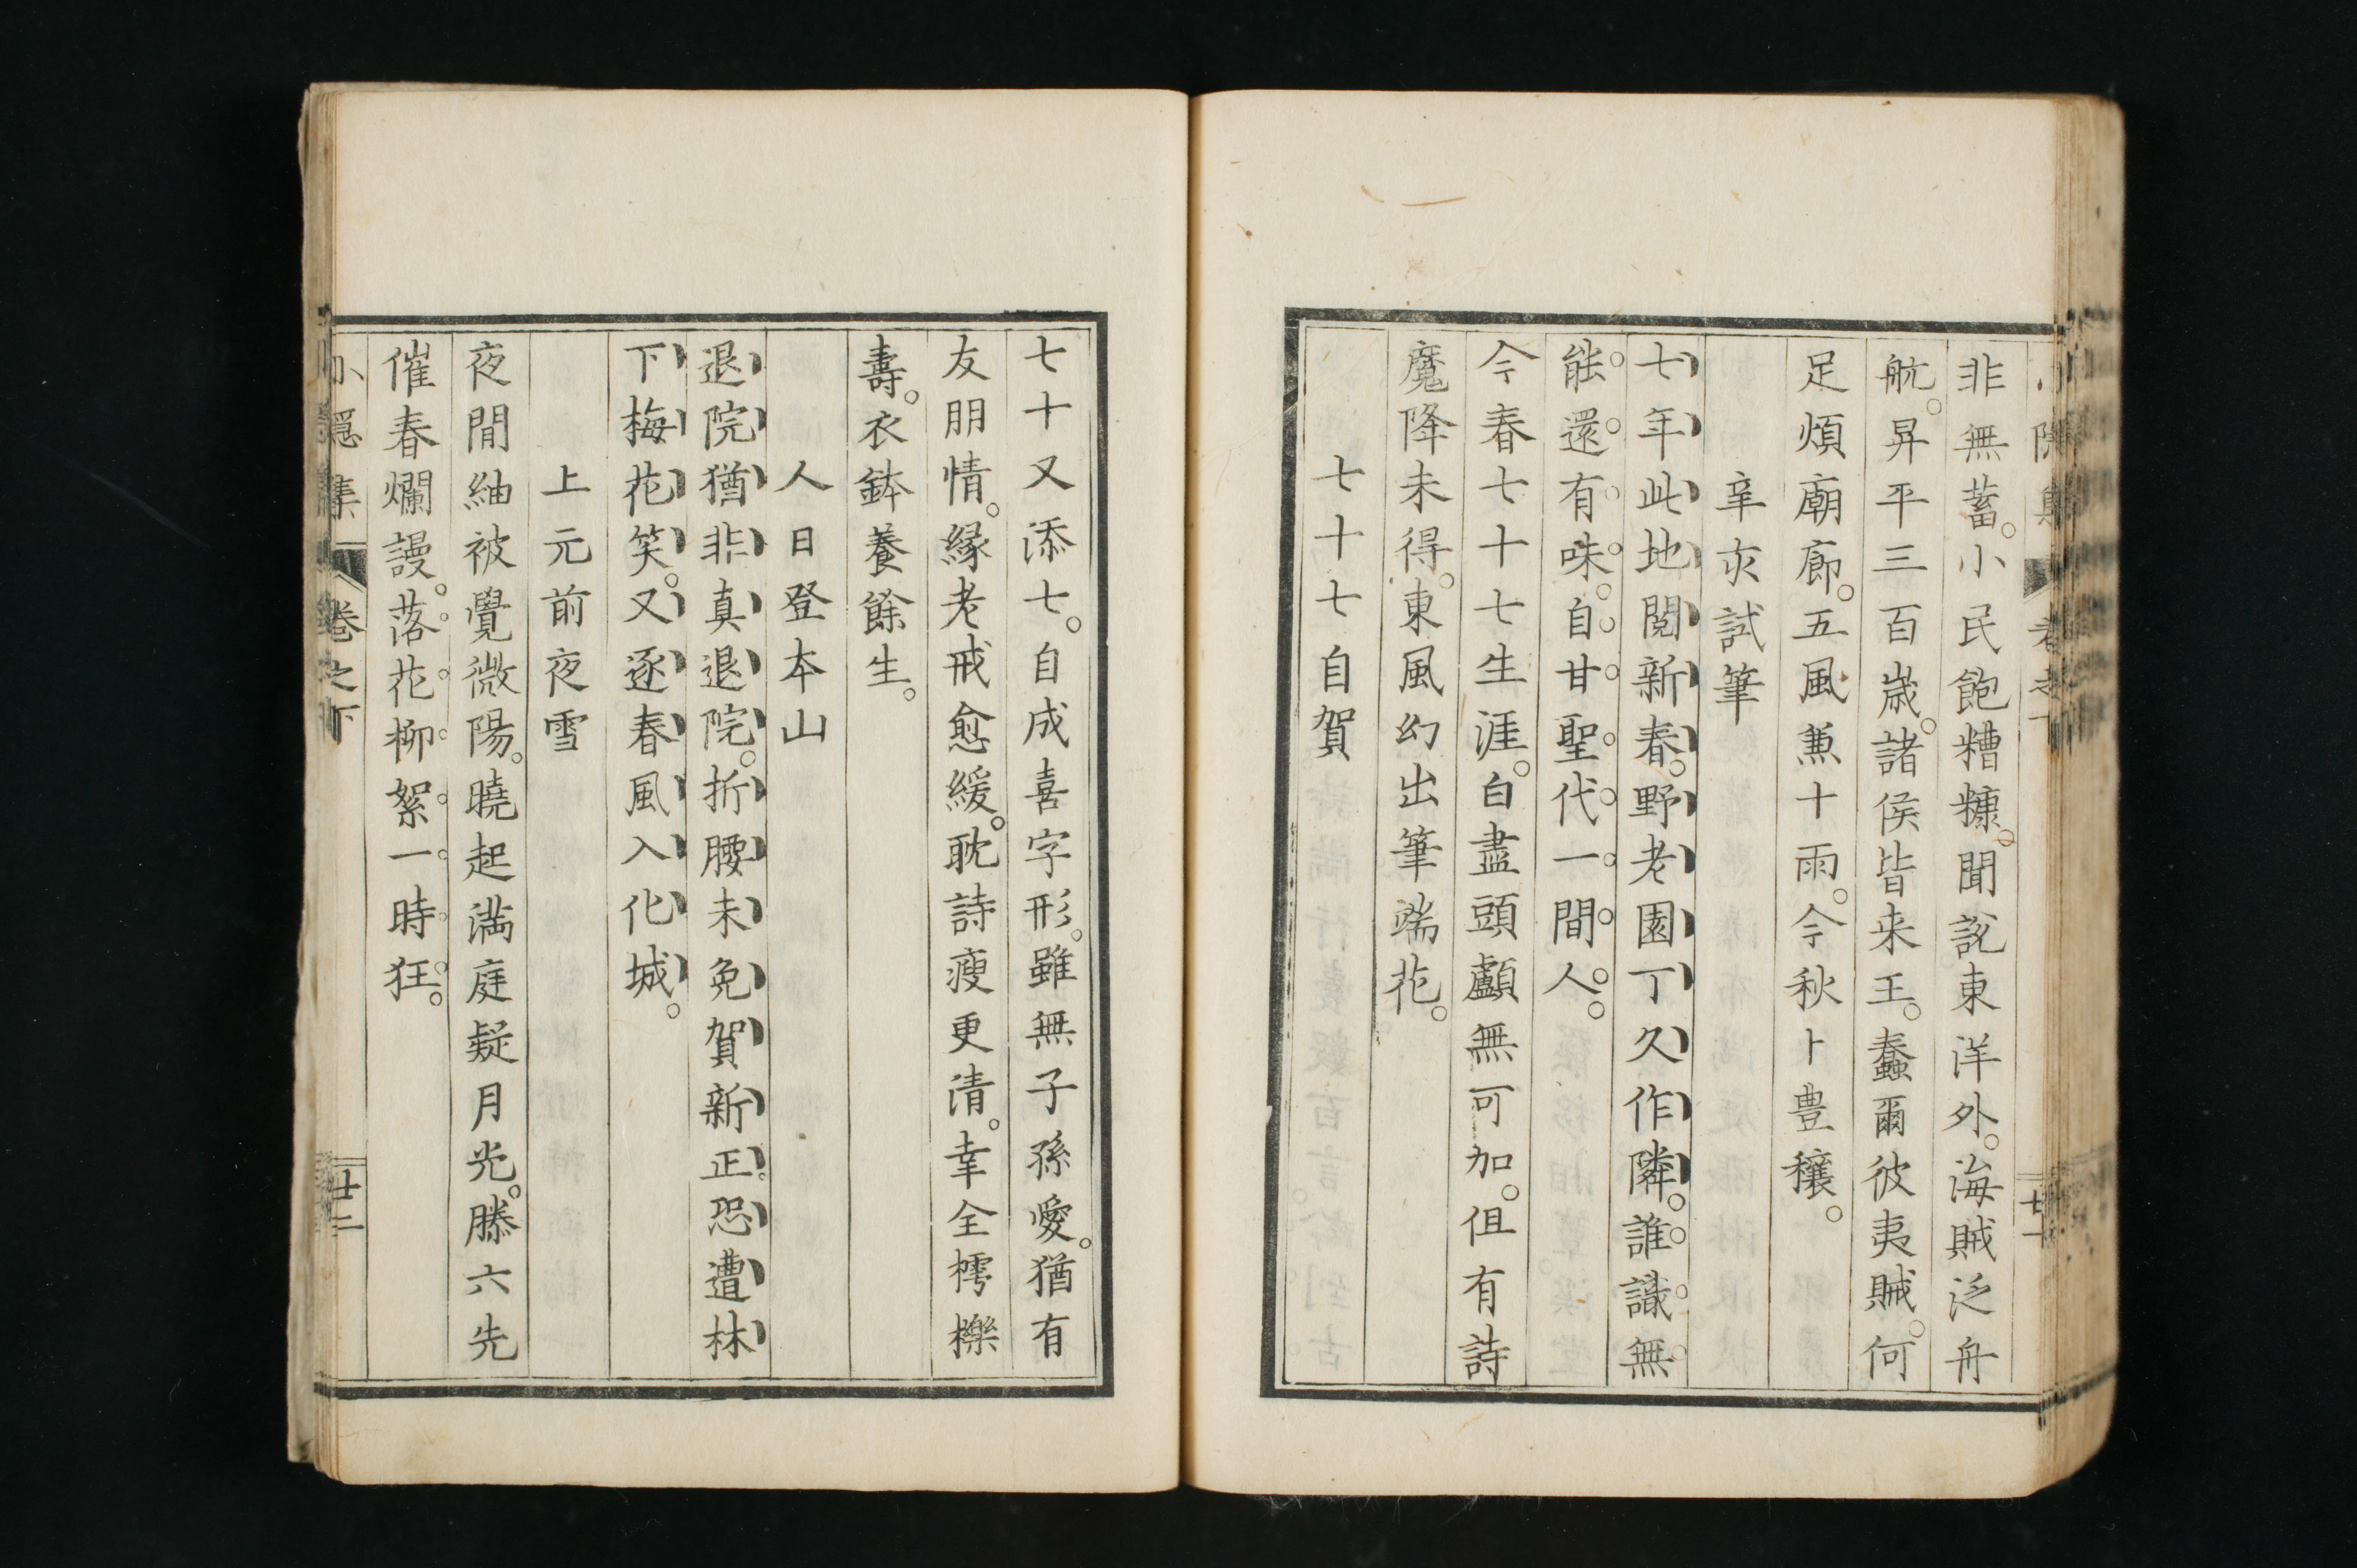 非無蓄。小民飽糟糠。聞說東洋外。海賊泛舟
航。昇平三百歲。諸侯皆来王。蠢爾彼夷賊。何
足煩廟廊。五風兼十雨。今秋卜豊穣。
辛亥試筆
七年此地閲新春。野老園丁久作隣。誰識無
能還有味。自甘聖代一間人。
今春七十七生涯。白盡頭顱無可加。但有詩
魔降未得。東風幻出筆端花。
七十七自賀
七十又添七。自成喜字形。雖無子孫愛。猶有
友朋情。縁老戒愈緩。耽詩瘦更清。幸全樗櫟
壽。衣鉢養餘生。
人日登本山
退院猶非真退院。折腰未免賀新正。恐遭林
下梅花笑。又逐春風入化城。
上元前夜雪
夜閒紬被覺微陽。曉起満庭疑月光。滕六先
催春爛謾。落花柳絮一時狂。
小隱集 卷之下 廿二